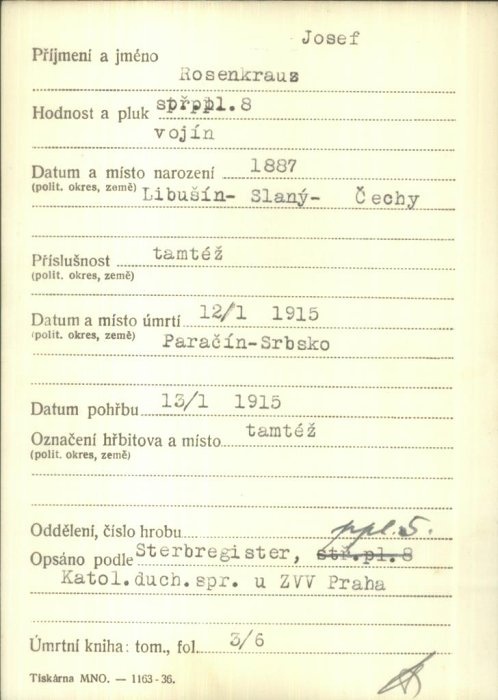 Josef
Příjmení a jméno
Rosenkrauz
Hodnost a pluk pl.8
vojín
Datum a místo narození 1887
(polit. okres, země) Libušín- Slaný- Čechy
Příslušnost tamtéž
(polit. okres, země)
Datum a místo úmrtí 12/1 1915
(polit. okres, země) Paračín-Srbsko
Datum pohřbu 13/1 1915
Označení hřbitova a místo tamtéž
(polit. okres, země)
Oddělení, číslo hrobu ppl.5.
Opsáno podle Sterbregister, stř.pl.8
Katol.duch.spr. u ZVV Praha
Úmrtní kniha: tom., fol. 3/6
Tiskárna MNO. — 1163-36.